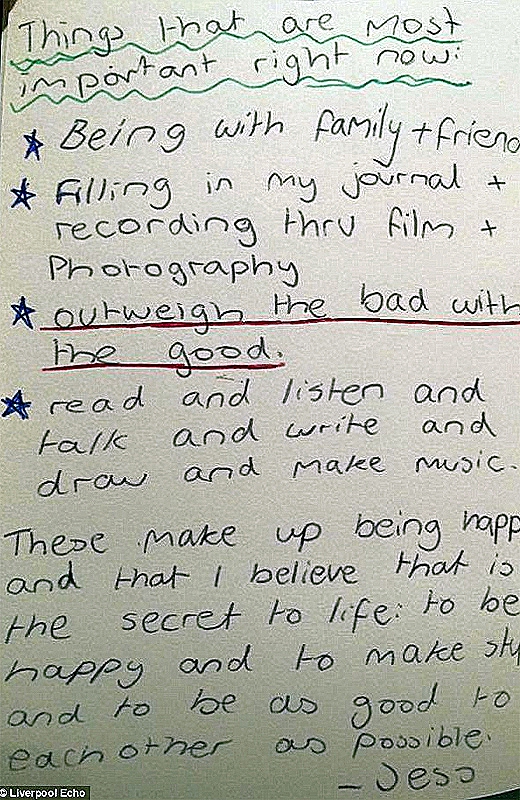 Things that are most
important right now:
Being with family + friend
Filling in my journal +
recording thru film +
Photography
outweigh the bad with
the good.
read and listen and
talk and write and
draw and make music.
These make up being happ
and that I believe that is
the secret to life: to be
happy and to make stu
and to be as good to
each other as possible.
- Jess
© Liverpool Echo